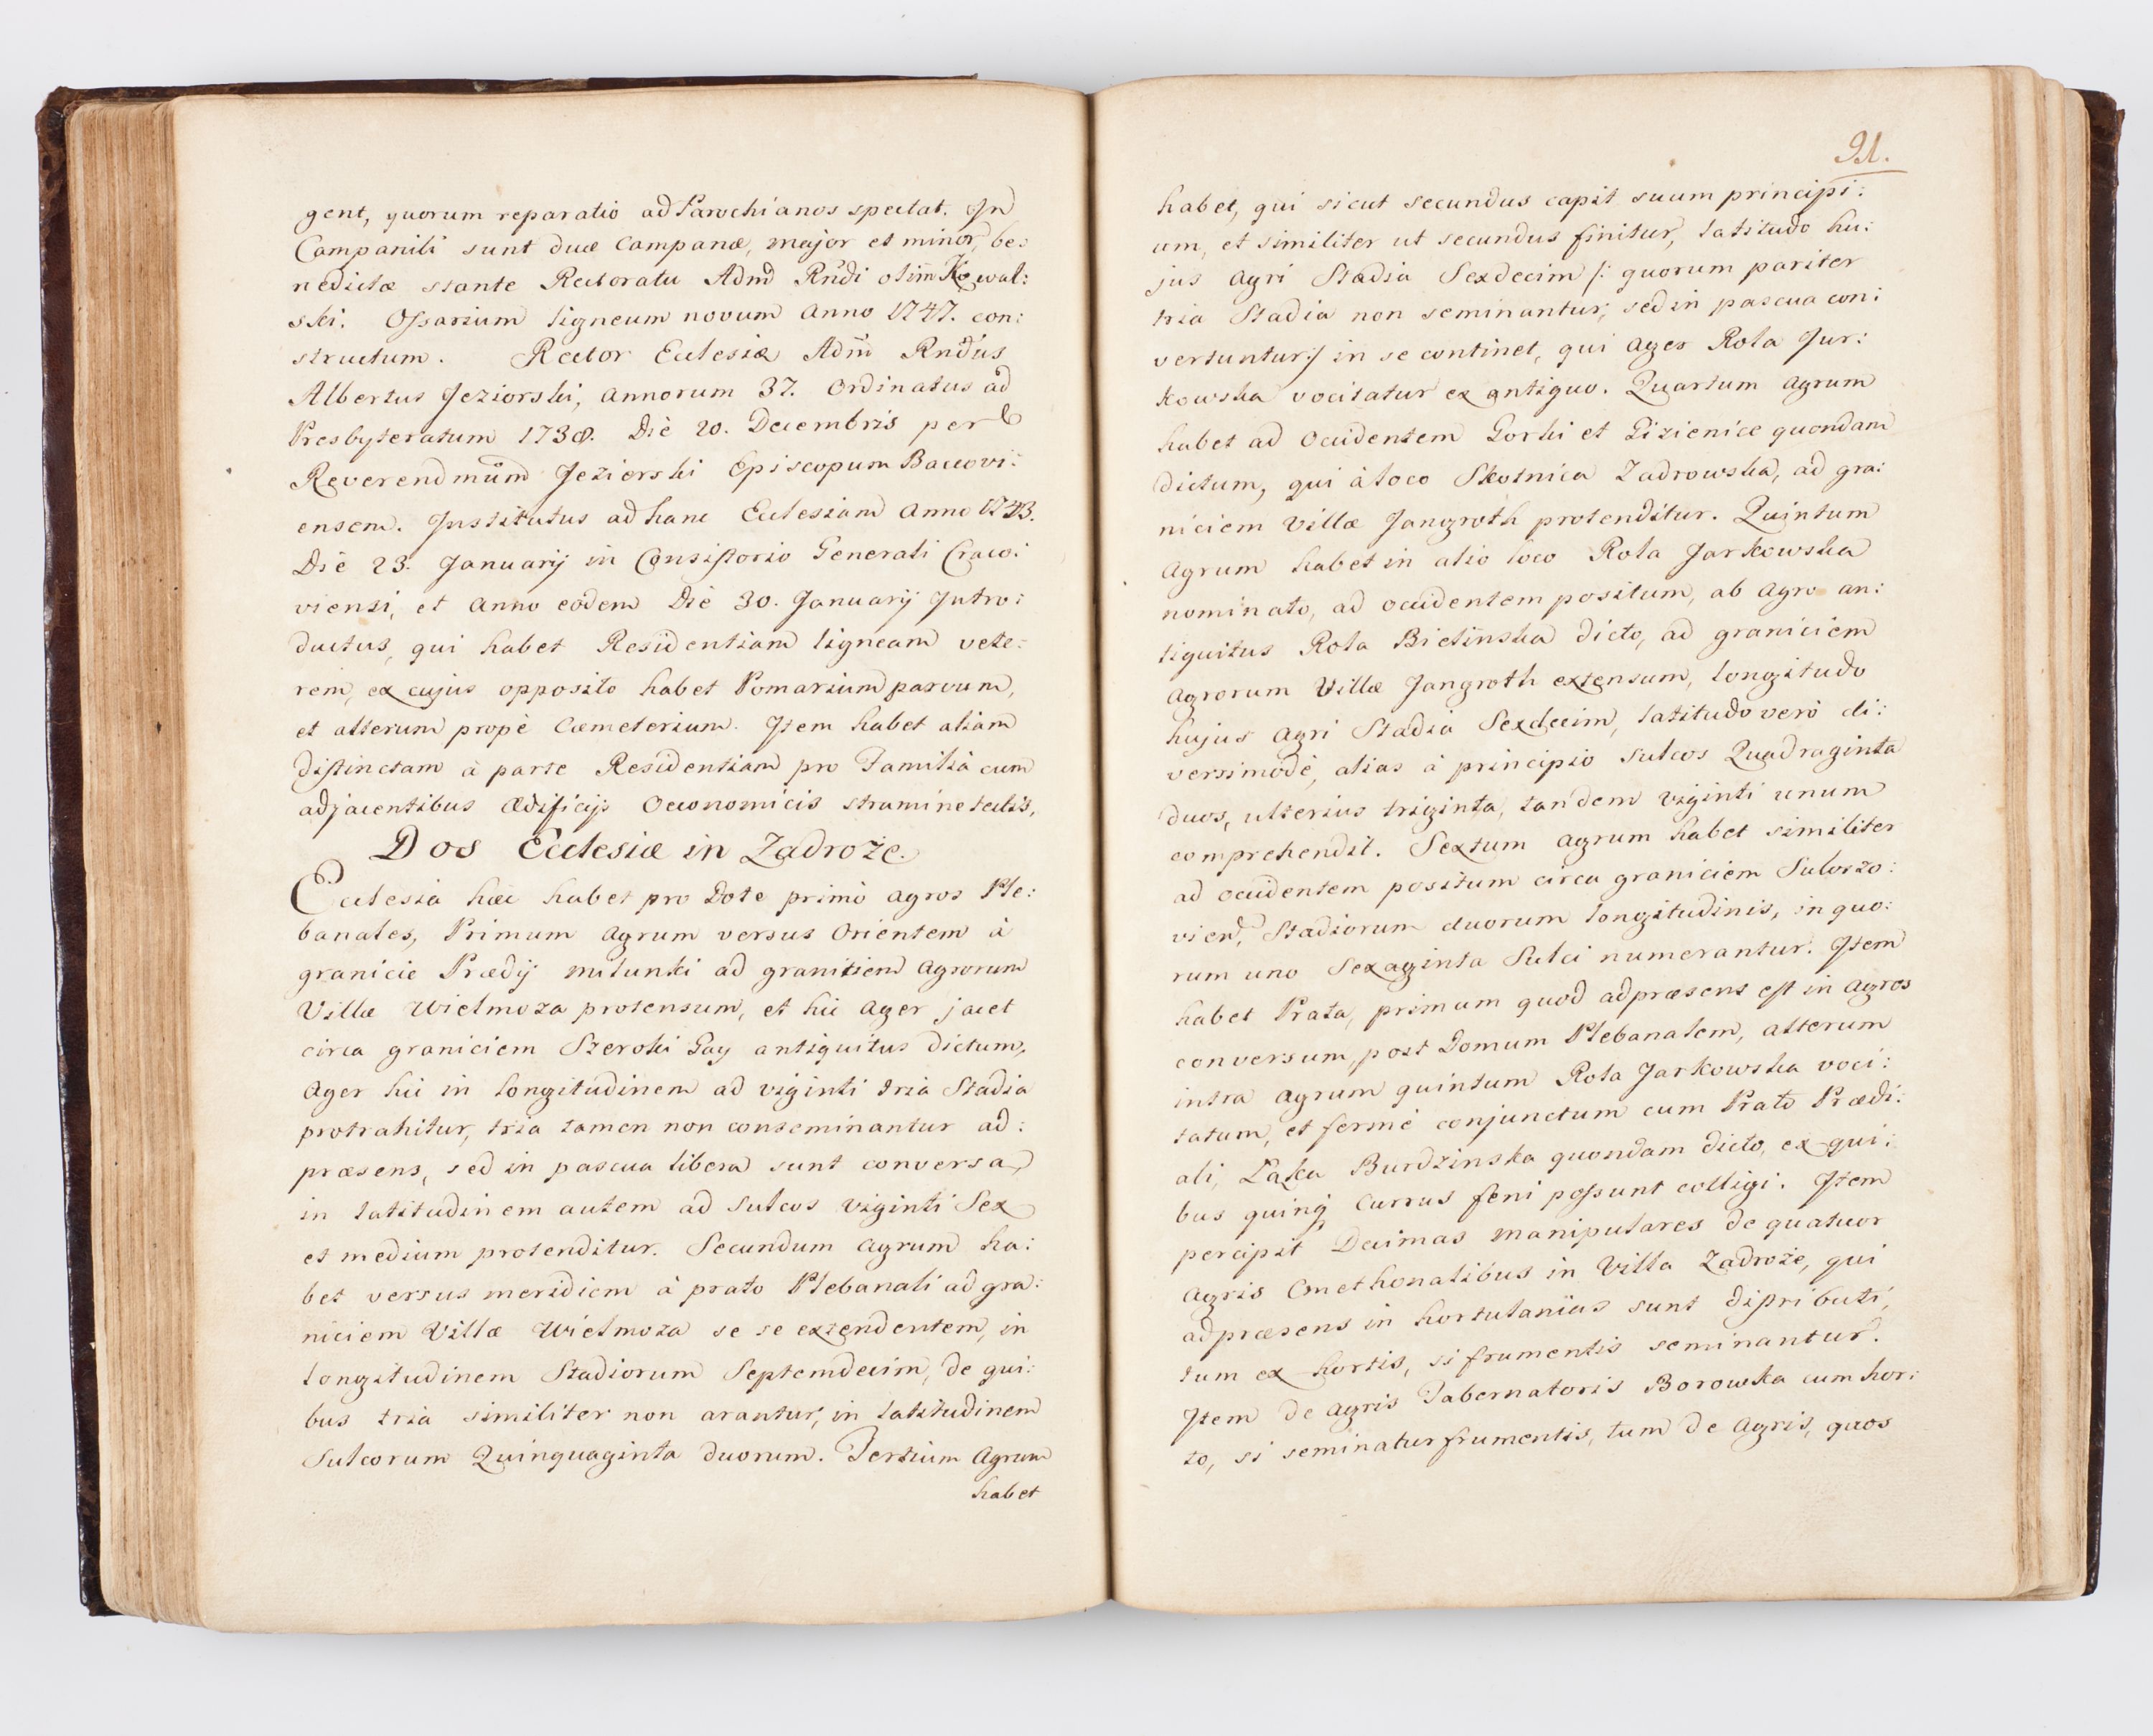 gent, quorum reparatio ad Parochianos spectat. In
Campanili sunt duæ Campanæ, major et minor, be:
nedictæ stante Rectoratu Admd Rndi olim Kowal:
ski. Ossarium ligneum novum Anno 1747. con:
structum. Rector Ecclesiæ Adm Rndus
Albertus Jeziorski, annorum 37. Ordinatus ad
Presbyteratum 1738. Diè 20. Decembris per
Reverendmum Jezierski Episcopum Baccovi:
ensem. Institutus ad hanc Ecclesiam Anno 1743.
Diè 23. Januarij in Consistorio Generali Craco:
viensi, et Anno eodem Diè 30. Januarij Intro:
ductus, qui habet Residentiam ligneam vete:
rem, ex cujus opposito habet Pomarium parvum,
et alterum propè Cæmeterium. Item habet aliam
distinctam à parte Residentiam pro Familiâ cum
adjacentibus Ædificijs Oeconomicis stramine tectis,
Dos Ecclesiæ in Zadroże.
Ecclesia hæc habet pro Dote primò agros Ple:
banales, Primum Agrum versus Orientem à
granicie Prædij milunki ad granitiem Agrorum
Villæ Wielmoza protensum, et hic Ager jacet
circa graniciem Szeroki Gay antiquitus dictum,
Ager hic in longitudinem ad viginti tria Stadia
protrahitur, tria tamen non conseminantur ad:
præsens, sed in pascua libera sunt conversa,
in latitudinem autem ad Sulcos viginti Sex
et medium protenditur. Secundum Agrum ha:
bet versus meridiem à prato Plebanali ad gra:
niciem Villæ Wielmoza se se extendentem, in
longitudinem Stadiorum Septemdecim, de qui:
bus tria similiter non arantur, in latitudinem
Sulcorum Quinquaginta duorum. Tertium Agrum
habet
91.
habet, qui sicut secundus capit suum principi:
um, et similiter ut secundus finitur, latitudo hu:
jus Agri Stadia Sexdecim /: quorum pariter
tria Stadia non seminantur, sed in pascua con:
vertuntur:/ in se continet, qui Ager Rola Jur:
kowska vocitatur ex antiquo. Quartum Agrum
habet ad Occidentem Gorki et Gizienice quondam
dictum, qui à loco Skotnica Zadrowska, ad gra:
niciem Villæ Jangroth protenditur. Quintum
Agrum habet in alio loco Rola Jarkowska
nominato, ad occidentem positum, ab Agro an:
tiquitus Rola Bielinska dicto, ad graniciem
Agrorum Villæ Jangroth extensum, longitudo
hujus Agri Stadia Sexdecim, latitudo verò di:
versimodè, alias à principio Sulcos Quadraginta
duos, ulterius triginta, tandem viginti unum
comprehendit. Sextum Agrum habet similiter
ad occidentem positum circa graniciem Sulorzo:
vien, Stadiorum duorum longitudinis, in quo:
rum uno Sexaginta Sulci numerantur. Item
habet Prata, primum quod adpræsens est in Agros
conversum, post Domum Plebanalem, alterum
intra Agrum quintum Rola Jarkowska voci:
tatum, et fermè conjunctum cum Prato Prædi:
ali, Łaka Burdzinska quondam dicto, ex qui:
bus quinq currus feni possunt colligi. Item
percipit Decimas manipulares de quatuor
Agris Cmethonalibus in Villa Zadroże, qui
adpræsens in hortulanias sunt distributi,
tum ex hortis, si frumentis seminantur.
Item de Agris Tabernatoris Borowka cum hor:
to, si seminatur frumentis, tum de Agris, quos